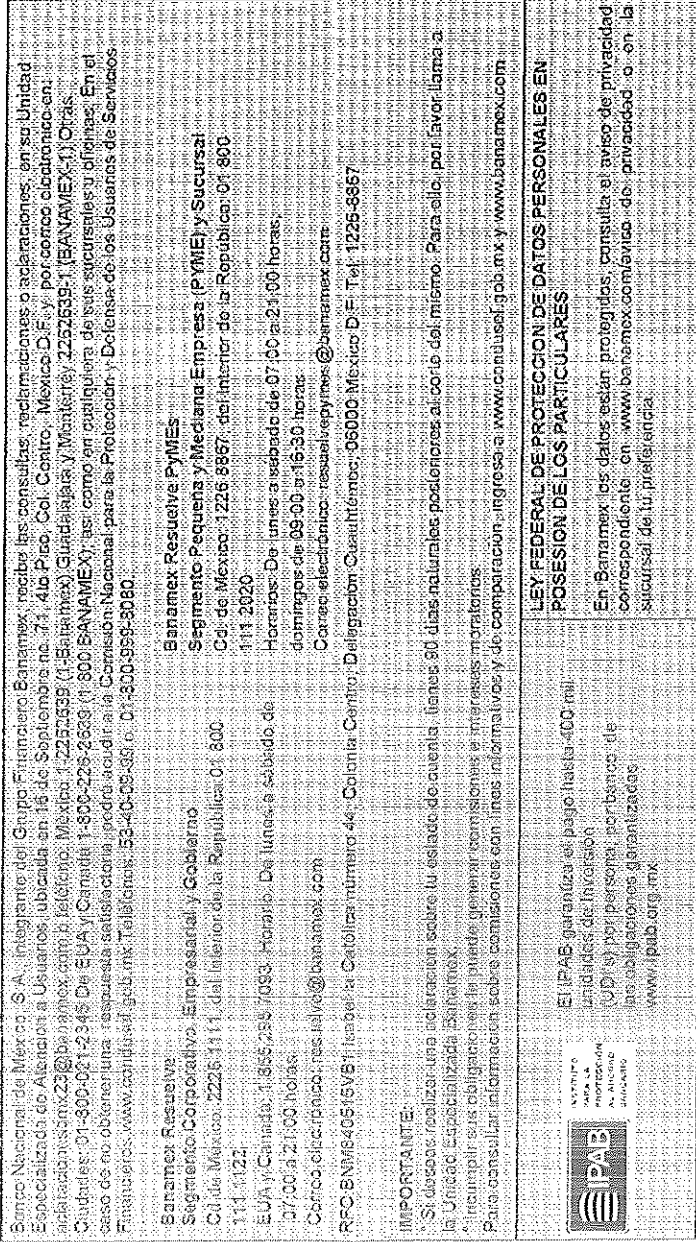 Banco Nacional de México, S.A., integrante del Grupo Financiero Banamex, recibe las consultas, reclamaciones o aclaraciones, en su Unidad
Especializada de Atención a Usuarios, ubicada en 16 de Septiembre no. 71, 4to Piso, Col. Centro, México D.F. y por correo electrónico en:
@banamex.com o teléfono: México 1-2262639 (1-Banamex), Guadalajara y Monterrey 2262639-1 (BANAMEX-1) Otras
Ciudades: 01-800-021-2345 De EUA y Canadá 1-800-226-2639 (1 800 BANAMEX), así como en cualquiera de sus sucursales u oficinas. En el
caso de no obtener una respuesta satisfactoria, podrá acudir a la Comisión Nacional para la Protección y Defensa de los Usuarios de Servicios
Financieros www.condusef.gob.mx Teléfonos: 53-40-09-99 o 01-800-999-8080.
Banamex Resuelve
Segmento Corporativo, Empresarial y Gobierno
Cd. de México: 2226 1111 del Interior de la República 01 800
111 1122
EUA y Canadá: 1 855 295 7093. Horario: De lunes a sábado de
07:00 a 21:00 horas.
Correo electrónico: resuelve@banamex.com
Banamex Resuelve PyMEs
Segmento Pequeña y Mediana Empresa (PYME) y Sucursal
Cd. de México: 1226 8867 del Interior de la República: 01 800
111 2020
Horarios: De lunes a sábado de 07:00 a 21:00 horas,
domingos de 09:00 a 16:30 horas
Correo electrónico: resuelvepymes@banamex.com
RFC BNM840515VB1 Isabel la Católica número 44, Colonia Centro, Delegación Cuauhtémoc, 06000 México D.F. Tel. 1226-8867
IMPORTANTE:
* Si deseas realizar una aclaración sobre tu estado de cuenta, tienes 90 días naturales posteriores al corte del mismo. Para ello, por favor llama a
la Unidad Especializada Banamex.
* Incumplir sus obligaciones le puede generar comisiones e intereses moratorios
Para consultar información sobre comisiones con fines informativos y de comparación, ingresa a www.condusef.gob.mx y www.banamex.com
IPAB
INSTITUTO
PARA LA
PROTECCIÓN
AL AHORRO
BANCARIO
El IPAB garantiza el pago hasta 400 mil
unidades de Inversión
(UDI's) por persona, por banco de
las obligaciones garantizadas
www.ipab.org.mx
LEY FEDERAL DE PROTECCION DE DATOS PERSONALES EN
POSESION DE LOS PARTICULARES
En Banamex los datos están protegidos, consulta el aviso de privacidad
correspondiente en www.banamex.com/aviso de privacidad o en la
sucursal de tu preferencia.